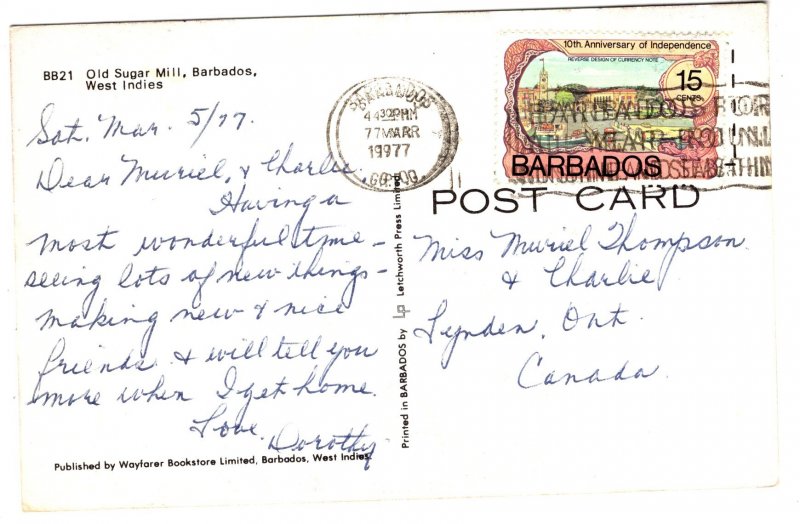 BB21 Old Sugar Mill, Barbados,
West Indies
Sat. Mar. 5/77.
Dear Muriel, & Charlie.
Having a
most wonderful time -
seeing lots of new things -
making new & nice
friends & will tell you
more when I get home.
Love.
Dorothy
Published by Wayfarer Bookstore Limited, Barbados, West Indies.
Printed in BARBADOS by Lp Letchworth Press Limited
BARBADOS
PM
MAR
1977
G.P.O.
10th. Anniversary of Independence
REVERSE DESIGN OF CURRENCY NOTE
15
CENTS
BARBADOS
POST CARD
Miss Muriel Thompson
& Charlie
Lynden, Ont.
Canada.